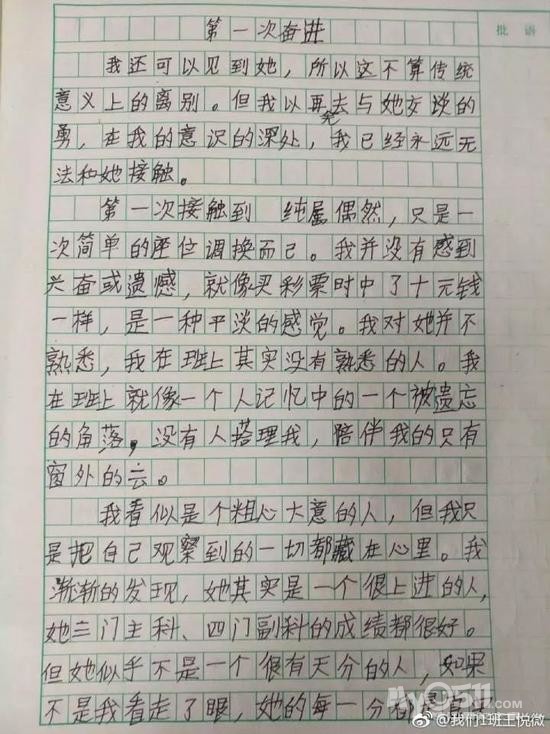 批语
第一次奋进
我还可以见到她，所以这不算传统
意义上的离别。但我以再去与她交谈的
勇，在我的意识的深处，我已经永远无
法和她接触。
第一次接触到 纯属偶然，只是一
次简单的座位调换而已。我并没有感到
兴奋或遗憾，就像买彩票时中了十元钱
一样，是一种平淡的感觉。我对她并不
熟悉，我在班上其实没有熟悉的人。我
在班上就像一个人记忆中的一个被遗忘
的角落，没有人搭理我，陪伴我的只有
窗外的云。
我看似是个粗心大意的人，但我只
是把自己观察到的一切都藏在心里。我
渐渐的发现，她其实是一个很上进的人，
她三门主科、四门副科的成绩都很好。
但她似乎不是一个很有天分的人，如果
不是我看走了眼，她的每一分都是
@我们1班王悦微